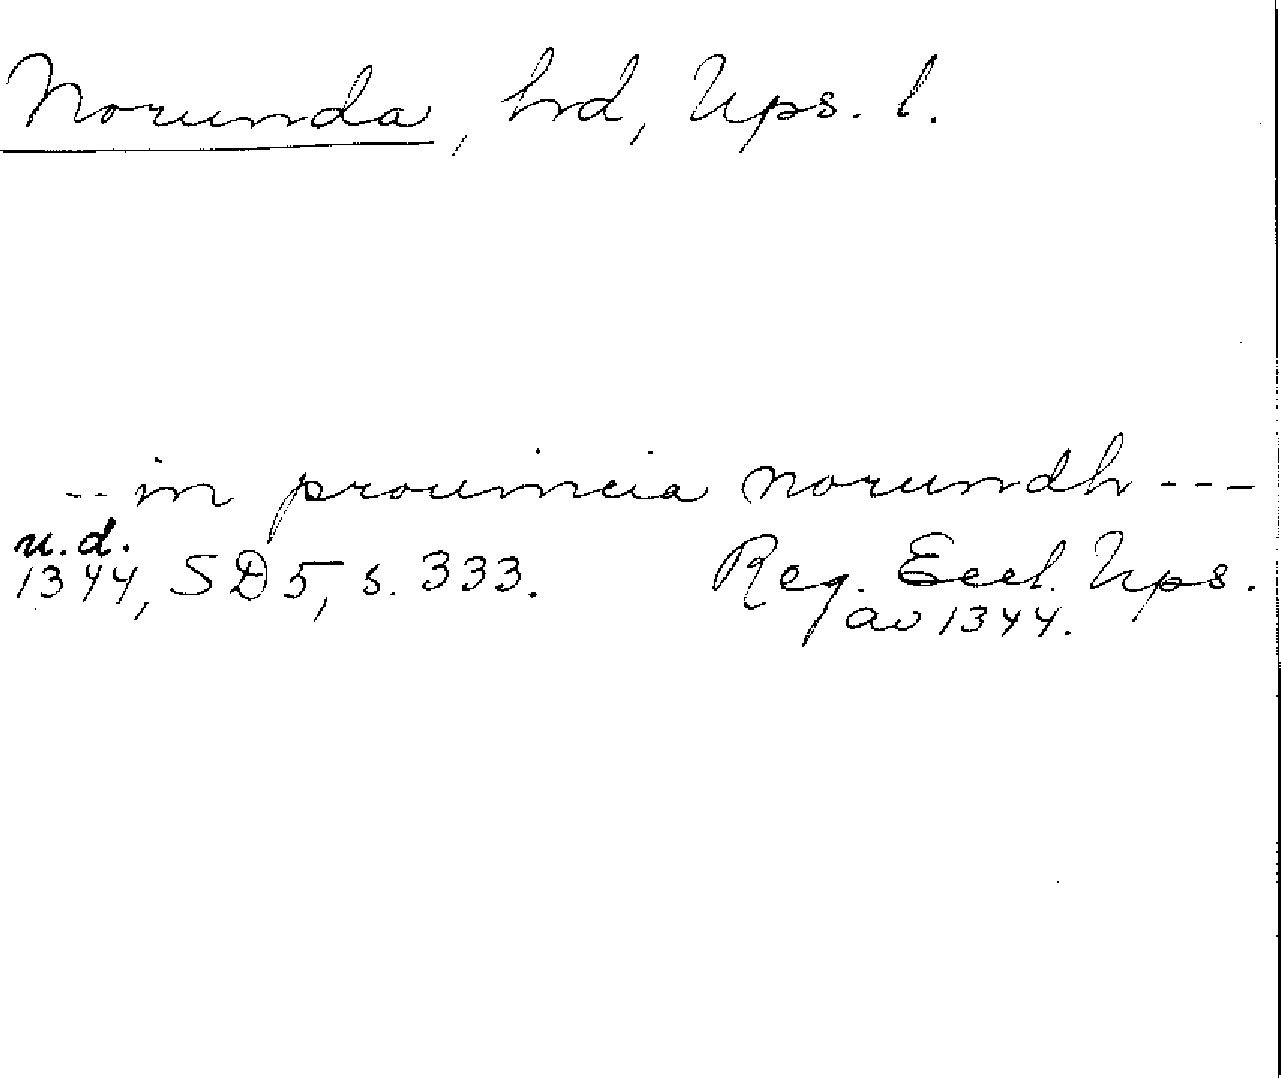 Norunda, hd, Ups. l.
-- in prouincia norundh ---
u.d.
1344, SD 5, s. 333. Reg. Eccl. Ups.
av 1344.